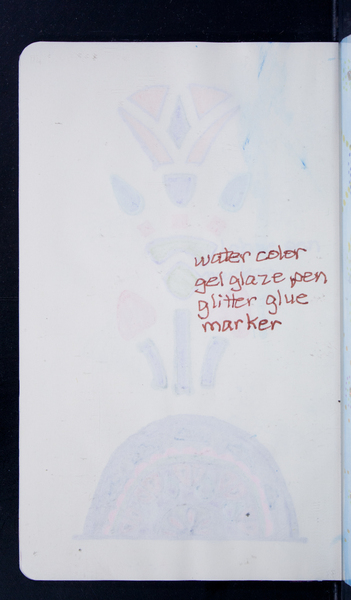 water color
gel glaze pen
glitter glue
marker